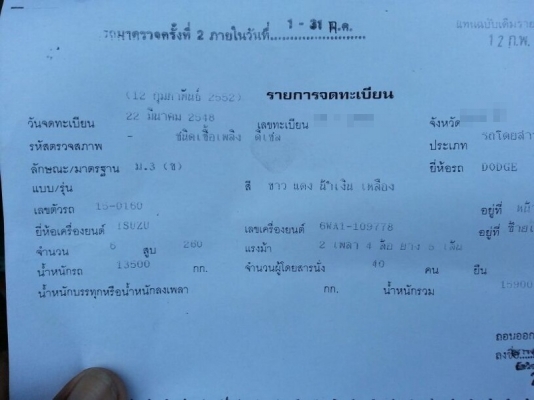 รถมาตรวจครั้งที่ 2 ภายในวันที่ 1 - 31 ก.ค.
แทนฉบับเดิม
12 ก.พ.
(12 กุมภาพันธ์ 2552) รายการจดทะเบียน
วันจดทะเบียน 22 มีนาคม 2548 เลขทะเบียน จังหวัด
รหัสตรวจสภาพ - ชนิดเชื้อเพลิง ดีเซล ประเภท รถโดยสาร
ลักษณะ/มาตรฐาน ม.3 (ข) ยี่ห้อรถ DODGE
แบบ/รุ่น สี ขาว แดง น้ำเงิน เหลือง
เลขตัวรถ 15-0160 อยู่ที่
ยี่ห้อเครื่องยนต์ ISUZU เลขเครื่องยนต์ 6WA1-109778 อยู่ที่
จำนวน 6 สูบ 260 แรงม้า 2 เพลา 4 ล้อ ยาง 6 เส้น
น้ำหนักรถ 13500 กก. จำนวนผู้โดยสารนั่ง 40 คน ยืน
น้ำหนักบรรทุกหรือน้ำหนักลงเพลา กก. น้ำหนักรวม 15900
ลงชื่อ